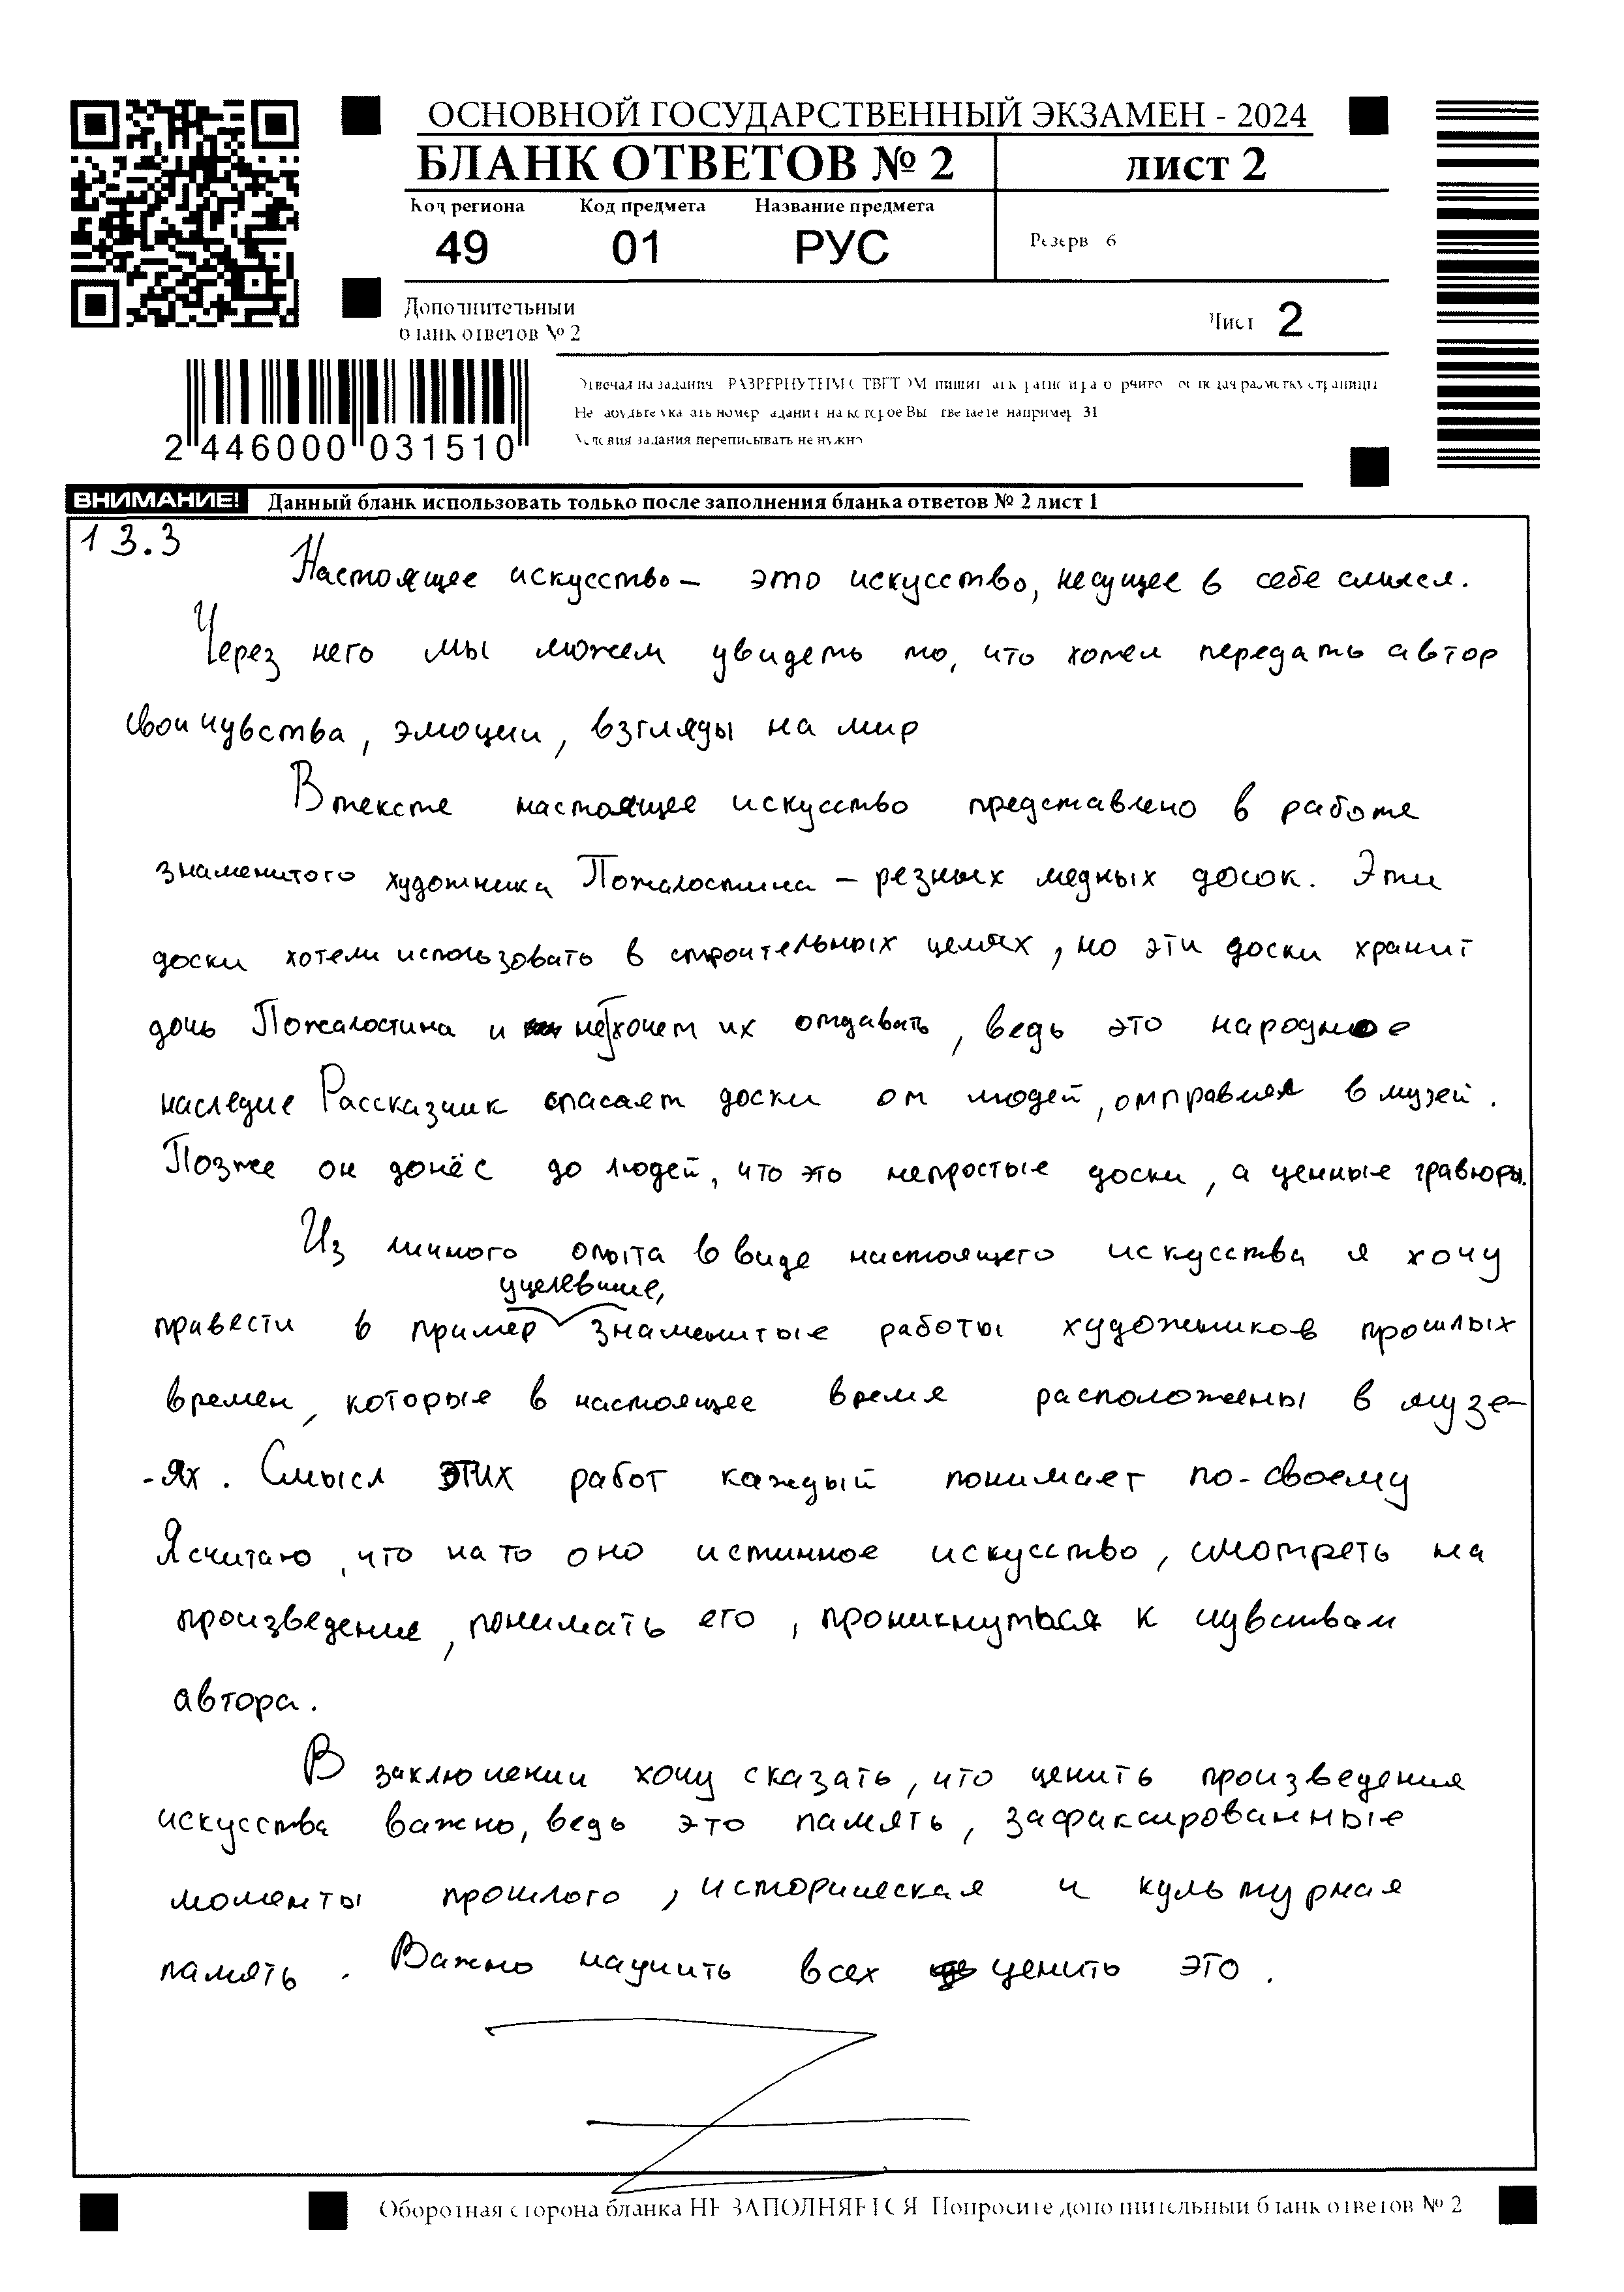 ОСНОВНОЙ ГОСУДАРСТВЕННЫЙ ЭКЗАМЕН - 2024
БЛАНК ОТВЕТОВ № 2 лист 2
Код региона Код предмета Название предмета
49 01 РУС Резерв 6
Дополнительный
бланк ответов № 2
Лист 2
Отвечая на задания РАЗВЕРНУТЫМ ОТВЕТОМ пишите аккуратно и разборчиво соблюдая разметку страницы
Не забудьте указать номер задания на которое Вы отвечаете например 31
Условия задания переписывать не нужно
2 446000 031510
ВНИМАНИЕ! Данный бланк использовать только после заполнения бланка ответов № 2 лист 1
13.3
Настоящее искусство – это искусство, несущее в себе смысл.
Через него мы можем увидеть то, что хотел передать автор
свои чувства, эмоции, взгляды на мир
В тексте настоящее искусство представлено в работе
знаменитого художника Пожалостина – резных медных досок. Эти
доски хотели использовать в строительных целях, но эти доски хранит
дочь Пожалостина и не хочет их отдавать, ведь это народное
наследие Рассказчик спасает доски от людей, отправляя в музей.
Позже он донёс до людей, что это непростые доски, а ценные гравюры.
Из личного опыта в виде настоящего искусства я хочу
уцелевшие,
привести в пример знаменитые работы художников прошлых
времен, которые в настоящее время расположены в музе-
-ях. Смысл этих работ каждый понимает по-своему
Я считаю, что на то оно истинное искусство, смотреть на
произведение, понимать его, проникнуться к чувствам
автора.
В заключении хочу сказать, что ценить произведения
искусства важно, ведь это память, зафаксированные
моменты прошлого, историческая и культурная
память. Важно научить всех ценить это.
Оборотная сторона бланка НЕ ЗАПОЛНЯЕТСЯ Попросите дополнительный бланк ответов № 2